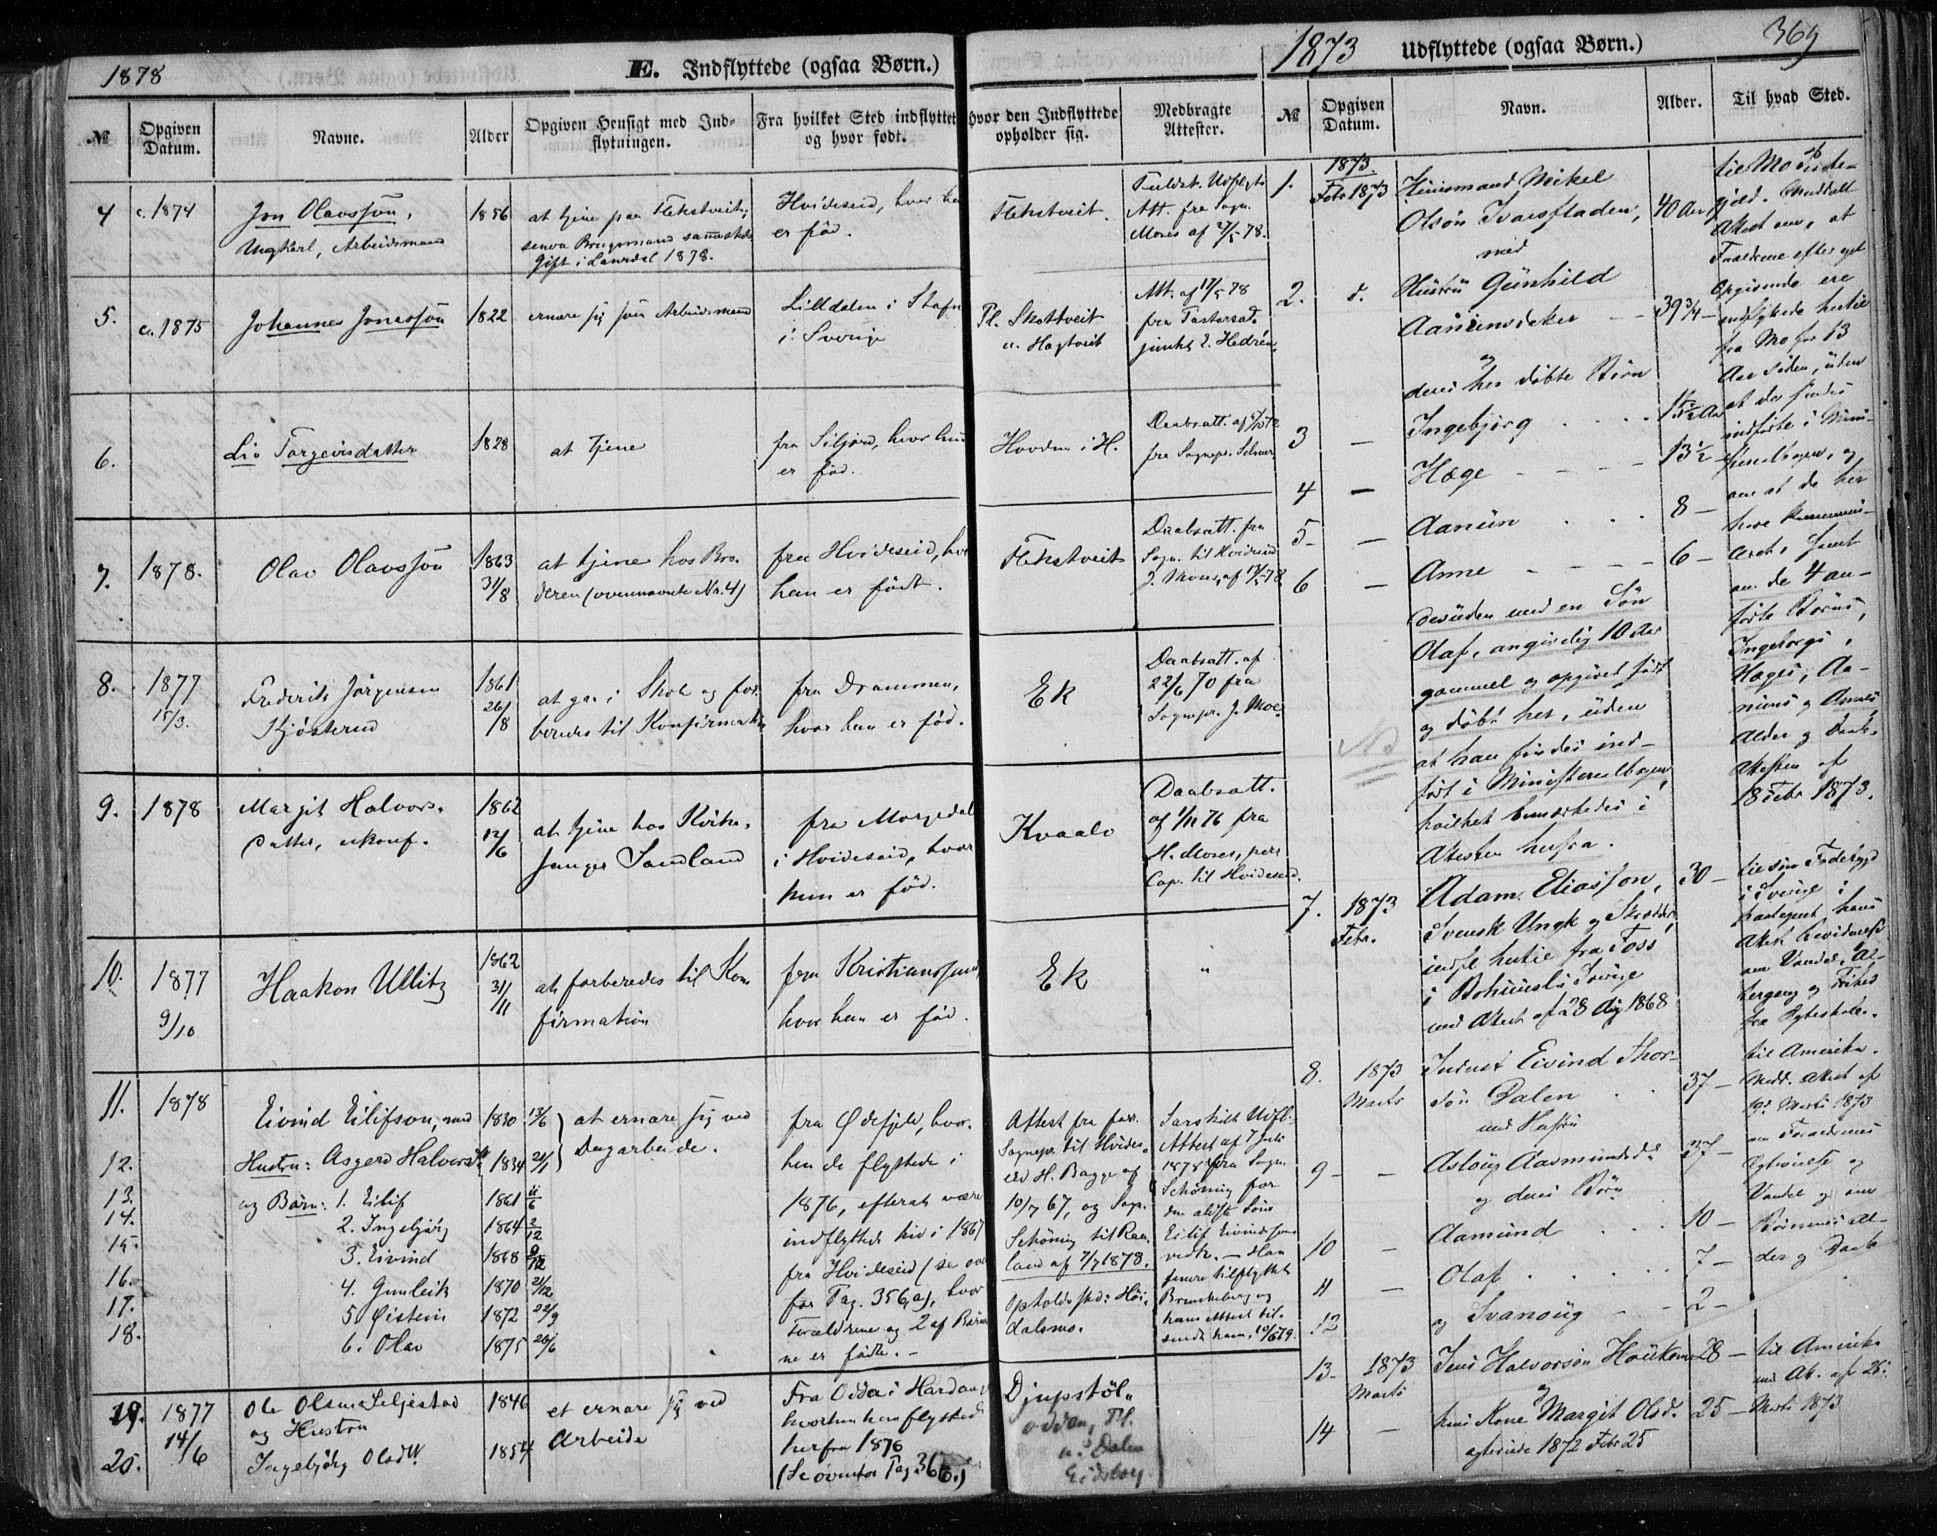 1878
E. Indflyttede (ogsaa Børn.)
№
Opgiven Datum.
Navne.
Alder
Opgiven Hensigt med Ind-
flytningen.
Fra hvilket Sted indflyttet
og hvor født.
Hvor den Indflyttede
opholder sig.
Medbragte
Attester.
4
c. 1874
Jon Olavssøn,
Ungkarl, Arbeidsmand
1856
at tjene paa Flekstveit,
senva Brugsmand sammesteds
Gift i Laurdal 1878.
Hvideseid, hvor han
er fød.
Flekstveit.
Fuldst. Udflytn.
Att. fra Sogn.
Moses af 78.
5.
c. 1875
Johannes Jonassøn
1822
ernære sig som Arbeidsmand
Lilldalen i Stafn
i Sverige
Pl. Skottveit
u. Hegtveit
Att. af 17/5 78
fra Pastorsad-
junkt Hedrén
6.
Liv Torgeirsdatter
1828
at tjene
fra Siljord, hvor hun
er fød.
Hovden i H.
Daabsatt. af
fra Sognepr.
7.
1878.
Olav Olavssøn
1863
31/8
at tjene hos Bro-
deren (ovennævnte Nr. 4)
fra Hvideseid, hvor
han er født.
Flekstveit
Daabsatt. fra
Sogn. til Hvideseid
J. Moses, af 78
8.
1877
15/3.
Frederik Jørgensen
Kjøsterud
1861
26/8
at gaa i Skole og for-
beredes til Konfirmation
fra Drammen,
hvor han er fød.
Ek
Daabsatt. af
22/6 70 fra
Sognepr. J. Moe.
9.
1878
Margit Halvors-
datter, ukonf.
1862
12/6
at tjene hos Kirke-
sanger Sandland
fra Morgedal
i Hvideseid, hvor
hun er fød.
Kvaale
Daabsatt.
af 1/11 76 fra
H. Moses, pers.
Cap. til Hvideseid.
10.
1877
9/10
Haakon Ullitz
1862
31/11
at forberedes til Kon-
firmation
fra Kristianssund
hvor han er fød.
Ek
"
11.
1878
Eivind Eilifson, med
1830 13/6
at ernære sig ved
Dagarbeide.
12.
Hustru: Asgerd Halvorsd.
1834 21/1
13.
og Børn: 1. Eilif
1861 11/6
14.
2. Ingebjørg
1864 2/12
15.
3. Eivind
1868 9/12
16.
4. Gunleik
1870 21/12
17.
5 Øistein
1872 22/9
18.
6. Olav
1875 26/6
fra Ødefjeld, hvor-
hen de flyttede i
1876, efterat være
indflyttede hid i 1867
fra Hvideseid (se oven
for Pag. 356, a), hvor
Forældrene og 2 af Børne-
ne er fødte. -
Attest fra for.
Sognepr. til Hvides-
eid H. Bagge af
10/7 67, og Sogn.
Schøning til Rau-
land af 7/7 1878.
Opholdssted: Høi-
dalsmo.
Særskilt Udfl.
Attest af 7 Juli
1878 fra Sogn.
Schøning for
den ældste Søn
Eilif Eivindssøn
vedk. - Han
senere tilflyttet
Brunkeberg og
hans Attest til-
sendt ham, 10/6 79.
19.
1877
14/6
Ole Olsen Seljestad
og Hustru
1846
20.
Ingebjørg Olsdtr.
1854
at ernære sig ved
Arbeide
Fra Odda i Hardanger
hvorhen han flyttede
herfra 1876
(Se ovenfor Pag. 366.)
Djupstøl-
odden, Pl.
u. Dalen
Eidsborg.
1873
Udflyttede (ogsaa Børn.)
369
№
Opgiven
Datum.
Navn.
Alder.
Til hvad Sted.
1.
1873
Febr 1873
Huusmand Mikel
Olsøn Tveesfladen,
med
40 Aar
2.
d.
Hustru Gunhild
Aanunsdater
39 3/4 -
og
deres her døbte Børn
3
-
Ingebjørg
15 1/2 Aar
4
-
Hæge
13 1/2 -
5
-
Aanün
8 -
6
-
Anne
6 -
desuden med en Søn
Olaf, angivelig 10 Aar
gammel og opgivet født
og døbt her, uden
at han findes ind-
ført i Ministerialbogen,
hvilket bemærkedes i
Attesten herfra.
til Mo Præste-
gjeld. Meddelt
Attest om, at
Forældrene efter eget
Opgivende ere
indflyttede hertil
fra Mo for 13
Aar siden, uden
at de findes
indførte i Mini-
sterialbogen, og
om at de her
have kommuni-
ceret, samt
om de 4 an-
førte Børns,
Ingeborgs,
Hæges, Aa-
nuns og Annes
Alder og Daab.
Attesten af
18 Febr 1873.
7.
1873
Febr.
Adam Eliasson,
Svensk Ungk. og Skrædder
indfl. hertil fra Foss
i Bohuuslæn Sverige
med Attest af 28 Aug 1868
30 -
til sin Fødebygd
i Sverige i
hans
Attest bevidnelse
om Vandel, Al-
tergang og Frihed
fra Ægteskab.
8.
1873
Marts
Inderst Eivind Thor-
søn Dalen
med Hustru
37 -
til Amerika.
Medd. Attest af
19de Marts 1873
om Forældrenes
Ægtevielse og
Vandel og om
Børnenes Al-
der og Daab
9
-
Aslaug Aasmundsd.
og deres Børn
37 -
10
-
Aamund
10 -
11
-
Olaf
7 -
12
og Svanaug
2 -
13.
1873
Marts
Jens Halvorsøn Haukom
28 -
til Amerika
med At. af 26
Marts 1873
og
14
-
hans Kone Margit Olsd.
25 -
ægteviede 1872 Febr 25